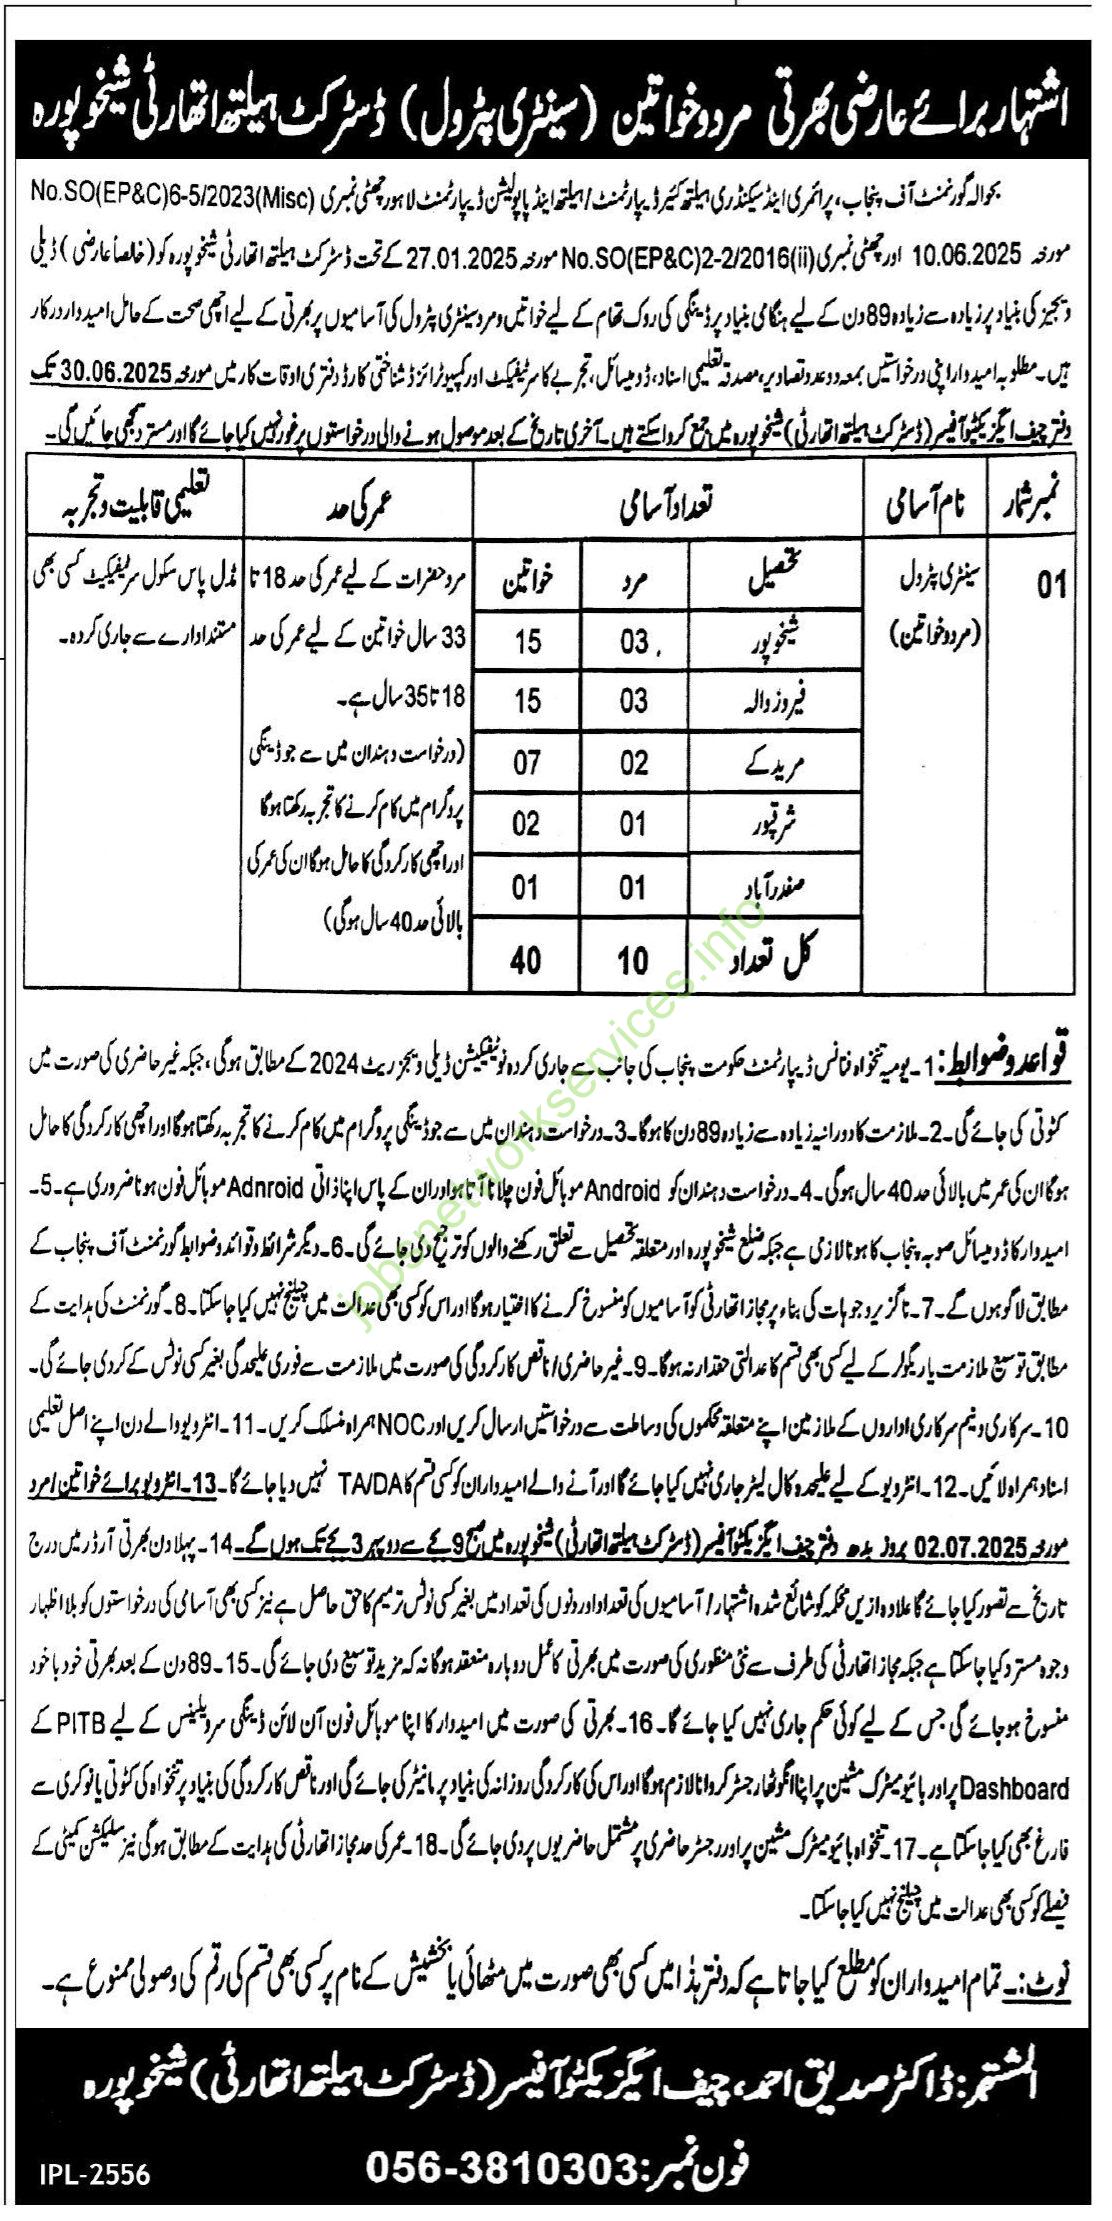 اشتہار برائے عارضی بھرتی مرد و خواتین (سینٹری پٹرول) ڈسٹرکٹ ہیلتھ اتھارٹی شیخوپورہ
بحوالہ گورنمنٹ آف پنجاب، پرائمری اینڈ سیکنڈری ہیلتھ کیئر ڈیپارٹمنٹ/ہیلتھ اینڈ پاپولیشن ڈیپارٹمنٹ لاہور چٹھی نمبری No.SO(EP&C)6-5/2023(Misc)
مورخہ 10.06.2025 اور چٹھی نمبری No.SO(EP&C)2-2/2016(ii) مورخہ 27.01.2025 کے تحت ڈسٹرکٹ ہیلتھ اتھارٹی شیخوپورہ کو (خالصاً عارضی) ڈیلی
ویجیز کی بنیاد پر زیادہ سے زیادہ 89 دن کے لیے ہنگامی بنیاد پر ڈینگی کی روک تھام کے لیے خواتین و مرد سینٹری پٹرول کی آسامیوں پر بھرتی کے لیے اچھی صحت کے حامل امیدوار درکار
ہیں۔ مطلوبہ امیدوار اپنی درخواستیں بمعہ دو عدد تصاویر، مصدقہ تعلیمی اسناد، ڈومیسائل، تجربے کا سرٹیفکیٹ اور کمپیوٹرائزڈ شناختی کارڈ دفتری اوقات کار میں مورخہ 30.06.2025 تک
دفتر چیف ایگزیکٹو آفیسر (ڈسٹرکٹ ہیلتھ اتھارٹی) شیخوپورہ میں جمع کروا سکتے ہیں۔ آخری تاریخ کے بعد موصول ہونے والی درخواستوں پر غور نہیں کیا جائے گا اور مسترد سمجھی جائیں گی۔
نمبر شمار نام آسامی تعداد آسامی عمر کی حد تعلیمی قابلیت و تجربہ
01 سینٹری پٹرول (مرد و خواتین)
تحصیل مرد خواتین
شیخوپور 03 15
فیروز والہ 03 15
مریدکے 02 07
شرقپور 01 02
صفدرآباد 01 01
کل تعداد 10 40
مرد حضرات کے لیے عمر کی حد 18 تا
33 سال خواتین کے لیے عمر کی حد
18 تا 35 سال ہے۔
(درخواست دہندان میں سے جو ڈینگی
پروگرام میں کام کرنے کا تجربہ رکھتا ہوگا
اور اچھی کارکردگی کا حامل ہوگا ان کی عمر کی
بالائی حد 40 سال ہوگی)
مڈل پاس سکول سرٹیفکیٹ کسی بھی
مستند ادارے سے جاری کردہ۔
قواعد و ضوابط: 1۔ یومیہ تنخواہ فنانس ڈیپارٹمنٹ حکومت پنجاب کی جانب سے جاری کردہ نوٹیفکیشن ڈیلی ویجز ریٹ 2024 کے مطابق ہوگی، جبکہ غیر حاضری کی صورت میں
کٹوتی کی جائے گی۔ 2۔ ملازمت کا دورانیہ زیادہ سے زیادہ 89 دن کا ہوگا۔ 3۔ درخواست دہندان میں سے جو ڈینگی پروگرام میں کام کرنے کا تجربہ رکھتا ہوگا اور اچھی کارکردگی کا حامل
ہوگا ان کی عمر میں بالائی حد 40 سال ہوگی۔ 4۔ درخواست دہندان کو Android موبائل فون چلانا آتا ہو اور ان کے پاس اپنا ذاتی Adnroid موبائل فون ہونا ضروری ہے۔ 5۔
امیدوار کا ڈومیسائل صوبہ پنجاب کا ہونا لازمی ہے جبکہ ضلع شیخوپورہ اور متعلقہ تحصیل سے تعلق رکھنے والوں کو ترجیح دی جائے گی۔ 6۔ دیگر شرائط و قوائد و ضوابط گورنمنٹ آف پنجاب کے
مطابق لاگو ہوں گے۔ 7۔ ناگزیر وجوہات کی بناء پر مجاز اتھارٹی کو آسامیوں کو منسوخ کرنے کا اختیار ہوگا اور اس کو کسی بھی عدالت میں چیلنج نہیں کیا جا سکتا۔ 8۔ گورنمنٹ کی ہدایت کے
مطابق توسیع ملازمت یا ریگولر کے لیے کسی بھی قسم کا عدالتی حقدار نہ ہوگا۔ 9۔ غیر حاضری/ناقص کارکردگی کی صورت میں ملازمت سے فوری علیحدگی بغیر کسی نوٹس کے کر دی جائے گی۔
10۔ سرکاری و نیم سرکاری اداروں کے ملازمین اپنے متعلقہ محکموں کی وساطت سے درخواستیں ارسال کریں اور NOC ہمراہ منسلک کریں۔ 11۔ انٹرویو والے دن اپنے اصل تعلیمی
اسناد ہمراہ لائیں۔ 12۔ انٹرویو کے لیے علیحدہ کال لیٹر جاری نہیں کیا جائے گا اور آنے والے امیدواران کو کسی قسم کا TA/DA نہیں دیا جائے گا۔ 13۔ انٹرویو برائے خواتین/مرد
مورخہ 02.07.2025 بروز بدھ دفتر چیف ایگزیکٹو آفیسر (ڈسٹرکٹ ہیلتھ اتھارٹی) شیخوپورہ میں صبح 9 بجے سے دوپہر 3 بجے تک ہوں گے۔ 14۔ پہلا دن بھرتی آرڈر میں درج
تاریخ سے تصور کیا جائے گا علاوہ ازیں محکمہ کو شائع شدہ اشتہار/آسامیوں کی تعداد اور دنوں کی تعداد میں بغیر کسی نوٹس ترمیم کا حق حاصل ہے نیز کسی بھی آسامی کی درخواستوں کو بلا اظہار
وجوہ مسترد کیا جا سکتا ہے جبکہ مجاز اتھارٹی کی طرف سے نئی منظوری کی صورت میں بھرتی کا عمل دوبارہ منعقد ہوگا نہ کہ مزید توسیع دی جائے گی۔ 15۔ 89 دن کے بعد بھرتی خود با خود
منسوخ ہو جائے گی جس کے لیے کوئی حکم جاری نہیں کیا جائے گا۔ 16۔ بھرتی کی صورت میں امیدوار کا اپنا موبائل فون آن لائن ڈینگی سرویلینس کے لیے PITB کے
Dashboard پر اور بائیومیٹرک مشین پر اپنا انگوٹھا رجسٹر کروانا لازم ہوگا اور اس کی کارکردگی روزانہ کی بنیاد پر مانیٹر کی جائے گی اور ناقص کارکردگی کی بنیاد پر تنخواہ کی کٹوتی یا نوکری سے
فارغ بھی کیا جا سکتا ہے۔ 17۔ تنخواہ بائیومیٹرک مشین پر اور رجسٹر حاضری پر مشتمل حاضریوں پر دی جائے گی۔ 18۔ عمر کی حد مجاز اتھارٹی کی ہدایت کے مطابق ہوگی نیز سلیکشن کمیٹی کے
فیصلے کو کسی بھی عدالت میں چیلنج نہیں کیا جا سکتا۔
نوٹ:۔ تمام امیدواران کو مطلع کیا جاتا ہے کہ دفتر ہذا میں کسی بھی صورت میں مٹھائی یا بخشیش کے نام پر کسی بھی قسم کی رقم کی وصولی ممنوع ہے۔
المشتہر: ڈاکٹر صدیق احمد، چیف ایگزیکٹو آفیسر (ڈسٹرکٹ ہیلتھ اتھارٹی) شیخوپورہ
فون نمبر: 056-3810303
IPL-2556
jobsnetworkservices.info